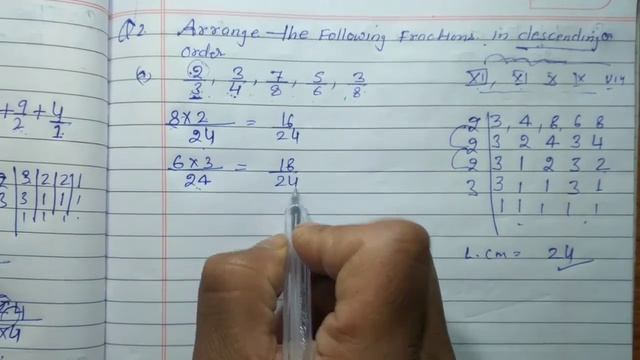 Q2 Arrange the Following Fractions in descending
order
a) 2/3, 3/4, 7/8, 5/6, 3/8
XII, XI, X, IX, VIII
8×2/24 = 16/24
6×3/24 = 18/24
2 | 3, 4, 8, 6 8
2 | 3 2 4 3 4
2 | 3 1 2 3 2
3 | 3 1 1 3 1
1 1 1 1 1
L.cm = 24
+ 9/2 + 4/1
3 2 2 1
3 | 3 1 1 1
1 1 1 1
×4